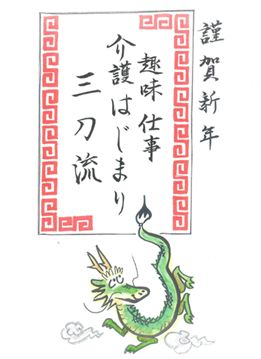 謹賀新年
趣味 仕事
介護はじまり
三刀流